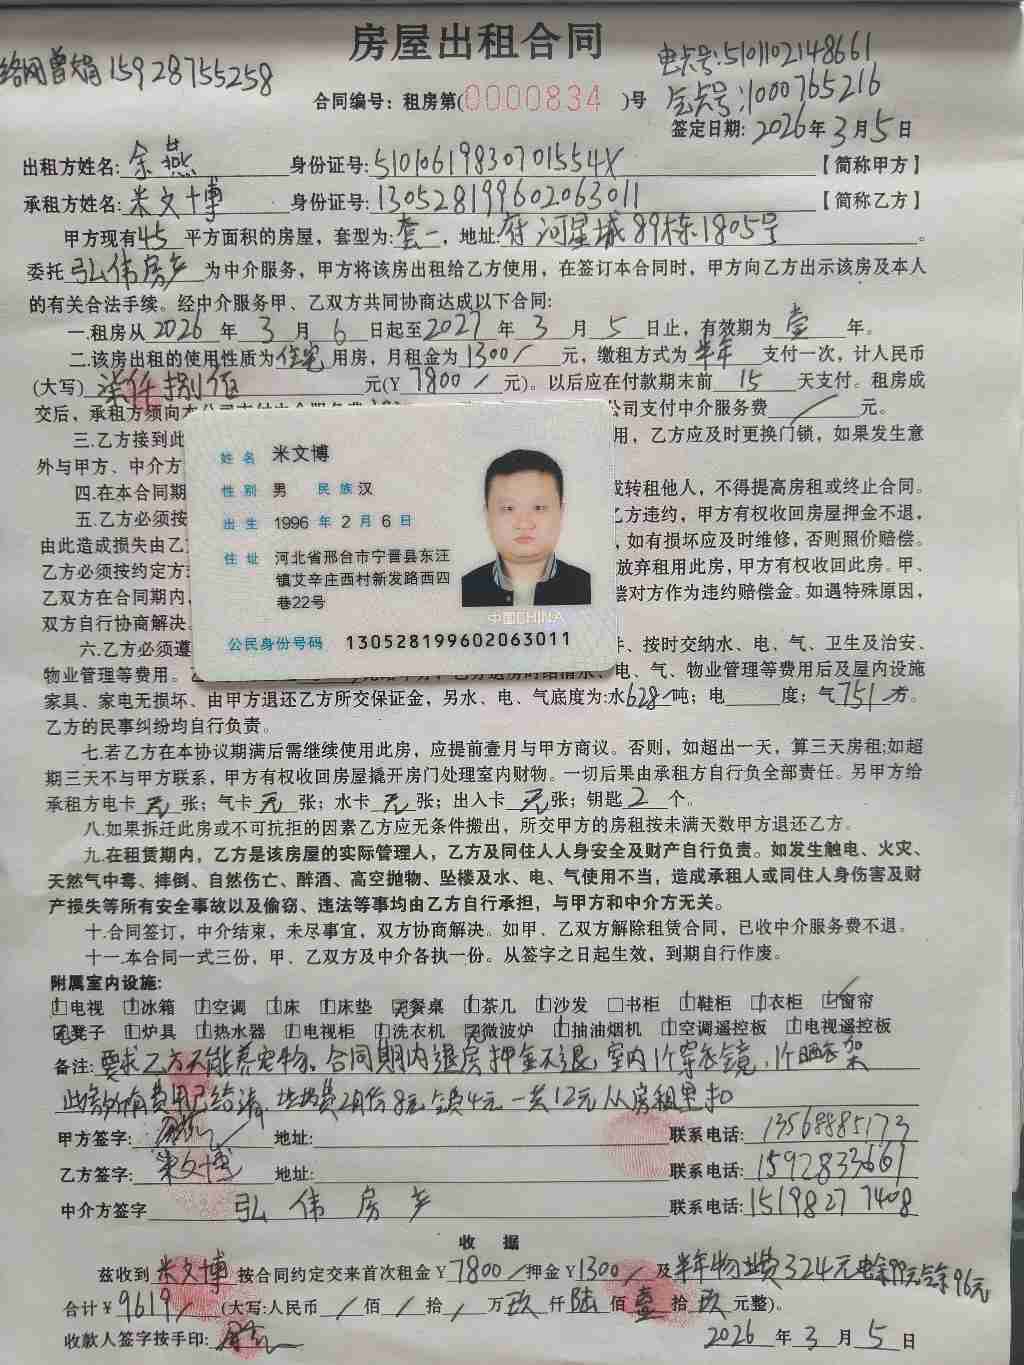 房屋出租合同
络网曾娟15928755258
电卡号:5101102148661
合同编号：租房第(0000834)号
气卡号:1000765216
签定日期: 2026年3月5日
出租方姓名: 余燕 身份证号: 51010619830701554X 【简称甲方】
承租方姓名: 米文博 身份证号: 130528199602063011 【简称乙方】
甲方现有45平方面积的房屋，套型为: 套一，地址: 府河星城89栋1805号。
委托弘伟房产为中介服务，甲方将该房出租给乙方使用，在签订本合同时，甲方向乙方出示该房及本人
的有关合法手续。经中介服务甲、乙双方共同协商达成以下合同:
一.租房从2026年3月6日起至2027年3月5日止，有效期为壹年。
二.该房出租的使用性质为住宅用房，月租金为1300/元，缴租方式为半年支付一次，计人民币
(大写)柒仟捌佰元(Y 7800/元)。以后应在付款期未前15天支付。租房成
交后，承租方须向 公司支付中介服务费/元。
三.乙方接到此 用，乙方应及时更换门锁，如果发生意
外与甲方、中介方
四.在本合同期 或转租他人，不得提高房租或终止合同。
五.乙方必须按 乙方违约，甲方有权收回房屋押金不退，
由此造成损失由乙 ，如有损坏应及时维修，否则照价赔偿。
乙方必须按约定方 放弃租用此房，甲方有权收回此房。甲、
乙双方在合同期内， 偿对方作为违约赔偿金。如遇特殊原因，
双方自行协商解决
六.乙方必须遵 、按时交纳水、电、气、卫生及治安、
物业管理等费用。 电、气、物业管理等费用后及屋内设施
家具、家电无损坏、由甲方退还乙方所交保证金，另水、电、气底度为:水628吨；电 度；气751方。
乙方的民事纠纷均自行负责。
姓名 米文博
性别 男 民族 汉
出生 1996年2月6日
住址 河北省邢台市宁晋县东汪
镇艾辛庄西村新发路西四
巷22号
中国CHINA
公民身份号码 130528199602063011
七.若乙方在本协议期满后需继续使用此房，应提前壹月与甲方商议。否则，如超出一天，算三天房租;如超
期三天不与甲方联系，甲方有权收回房屋撬开房门处理室内财物。一切后果由承租方自行负全部责任。另甲方给
承租方电卡无张；气卡无张；水卡无张；出入卡无张；钥匙2个。
八.如果拆迁此房或不可抗拒的因素乙方应无条件搬出，所交甲方的房租按未满天数甲方退还乙方。
九.在租赁期内，乙方是该房屋的实际管理人，乙方及同住人人身安全及财产自行负责。如发生触电、火灾、
天然气中毒、摔倒、自然伤亡、醉酒、高空抛物、坠楼及水、电、气使用不当，造成承租人或同住人身伤害及财
产损失等所有安全事故以及偷窃、违法等事均由乙方自行承担，与甲方和中介方无关。
十.合同签订，中介结束，未尽事宜，双方协商解决。如甲、乙双方解除租赁合同，已收中介服务费不退。
十一.本合同一式三份，甲、乙双方及中介各执一份。从签字之日起生效，到期自行作废。
附属室内设施:
电视 冰箱 空调 床 床垫 餐桌 茶几 沙发 书柜 鞋柜 衣柜 窗帘
凳子 炉具 热水器 电视柜 洗衣机 微波炉 抽油烟机 空调遥控板 电视遥控板
备注: 要求乙方不能养宠物。合同期内退房押金不退，室内1个穿衣镜，1个晒衣架
此 所有费用已给清，垃圾费2月份8元 4元一共12元从房租里扣
甲方签字: 地址: 联系电话: 13568885173
乙方签字: 米文博 地址: 联系电话: 1592833661
中介方签字 弘伟房产 联系电话: 15198277408
收 据
兹收到米文博按合同约定交来首次租金￥7800/押金￥1300/及半年物业费324元电余99元气余96元
合计￥9619/(大写:人民币/佰/拾/万玖仟陆佰壹拾玖元整)。
收款人签字按手印: 2026年3月5日